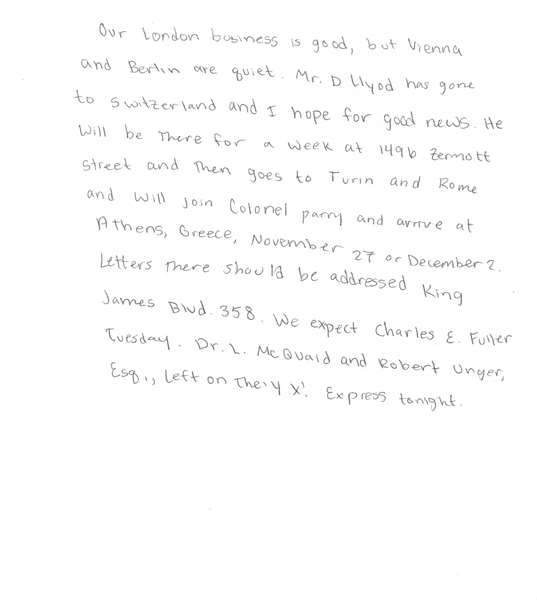 Our London business is good, but Vienna
and Berlin are quiet. Mr. D Llyod has gone
to Switzerland and I hope for good news. He
will be there for a week at 1496 Zermott
street and then goes to Turin and Rome
and will join Colonel parry and arrive at
Athens, Greece, November 27 or December 2.
Letters there should be addressed King
James Blvd. 358. We expect Charles E. Fuller
Tuesday. Dr. L. McQuaid and Robert Unger,
Esq., Left on the 'Y.X'. Express tonight.